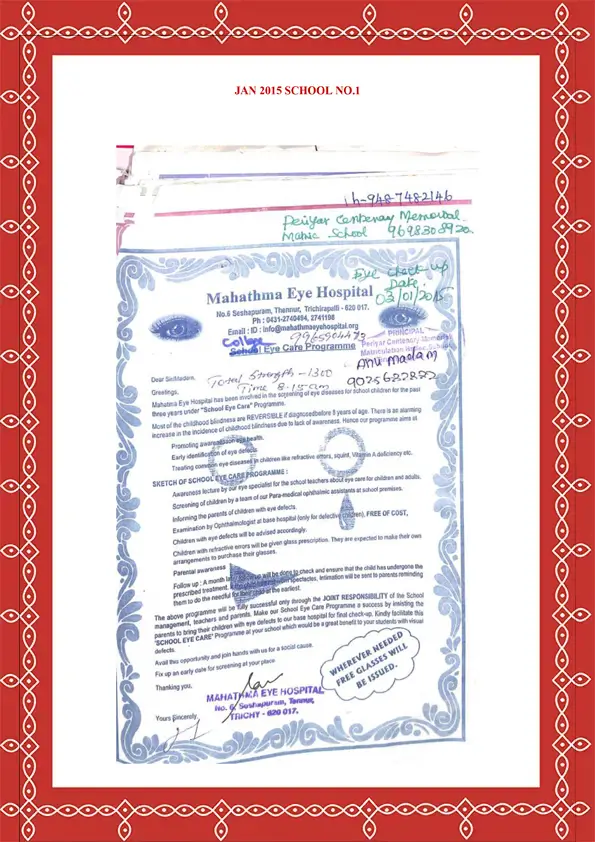 JAN 2015 SCHOOL NO.1
Ph-9487482146
Periyar Centenary Memorial
Matric School 9698308920.
Eye check-up
Date.
03/01/2015
Mahathma Eye Hospital
No.6 Seshapuram, Thennur, Trichirapalli - 620 017.
Ph : 0431-2740494, 2741198
Email : ID : info@mahathmaeyehospital.org
9965904473
College
School Eye Care Programme
PRINCIPAL
Periyar Centenary Memorial
Matriculation Hr. Sec. School
Anu Madam
Dear Sir/Madam,
Total Strength - 1300
Greetings,
Time 8.15 am
Mahatma Eye Hospital has been involved in the screening of eye diseases for school children for the past
three years under "School Eye Care" Programme.
Most of the childhood blindness are REVERSIBLE if diagnosedbefore 8 years of age. There is an alarming
increase in the incidence of childhood blindness due to lack of awareness. Hence our programme aims at
Promoting awareness on eye health.
Early identification of eye defects
Treating common eye diseases in children like refractive errors, squint, Vitamin A deficiency etc.
SKETCH OF SCHOOL EYE CARE PROGRAMME :
Awareness lecture by our eye specialist for the school teachers about eye care for children and adults.
Screening of children by a team of our Para-medical ophthalmic assistants at school premises.
Informing the parents of children with eye defects.
Examination by Ophthalmologist at base hospital (only for defective children), FREE OF COST,
Children with eye defects will be advised accordingly.
Children with refractive errors will be given glass prescription. They are expected to make their own
arrangements to purchase their glasses.
Parental awareness
Follow up : A month later will be done to check and ensure that the child has undergone the
prescribed treatment. spectacles, Intimation will be sent to parents reminding
them to do the needful for their child at the earliest.
The above programme will be fully successful only through the JOINT RESPONSIBILITY of the School
management, teachers and parents. Make our School Eye Care Programme a success by insisting the
parents to bring their children with eye defects to our base hospital for final check-up. Kindly facilitate this
'SCHOOL EYE CARE' Programme at your school which would be a great benefit to your students with visual
defects.
Avail this opportunity and join hands with us for a social cause.
Fix up an early date for screening at your place
Thanking you,
WHEREVER NEEDED
FREE GLASSES WILL
BE ISSUED.
MAHATHMA EYE HOSPITAL
No. 6, Seshapuram, Tennur,
TRICHY - 620 017.
Yours Sincerely,